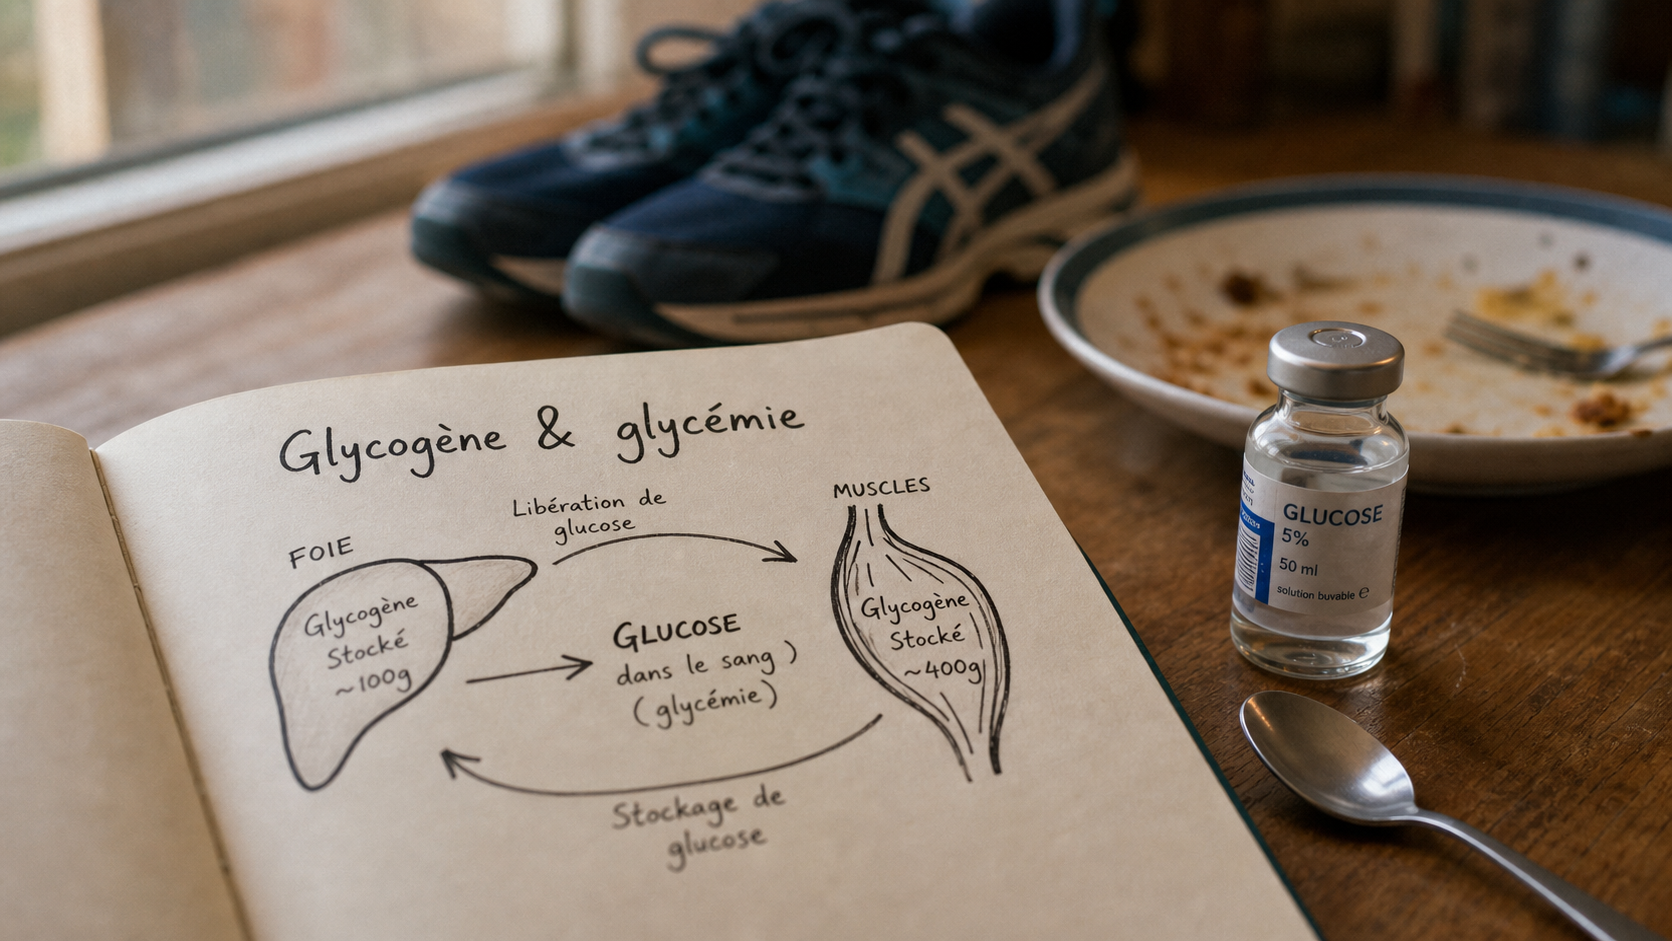 Glycogène & glycémie
Libération de
glucose
FOIE
Glycogène
Stocké
~100g
GLUCOSE
dans le sang )
(glycémie)
MUSCLES
Glycogène
Stocké
~400g
Stockage de
glucose
GLUCOSE
5%
50 ml
solution buvable ℮